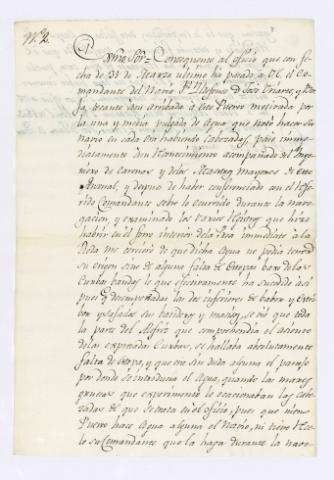 N.º 2.
Exmo Sor. Consequente al oficio que con fe
cha de 31 de Marzo ultimo ha pasado à VE. el Co
mandante del Navio Sn Ildefonso Dn Josè Uriarte, y Bor
ja, tocante à su arribada à este Puerto motivada por
la una y media pulgada de Agua que notò hacer su
navio en cada ora habiendo cabezadas; pasè inme
diatamente à su reconocimiento acompañado del Inge
niero de Carenas y de los Maestros mayores de este
Arsenal, y despues de haber conferenciado con el refe
rido Comandante sobre lo ocurrido durante la nave
gacion, y examinado los varios registros que hizo
habrir en el forro interior de la Proa inmediato à la
Roda me cercioré de que dicha Agua no podia tener
su origen sino de alguna falta de Estopas baxo de las
Curbas bandas lo que efectivamente ha sucedido asi
pues desempernadas las dos inferiores de babor y Estri
bor y safadas sus
la parte del Alefriz que comprehendia el asiento
de las expresadas Curbas, se hallaba absolutamente
falta de estopa, y que era sin duda alguna el parage
por donde se introducia el Agua, quando las mares
gruesas que experimentò le ocasionaban las cabe
zadas de que se trata en el oficio, pues que ni en
Puerto hace Agua alguna el Navio, ni tiene rece
lo su Comandante que la haga durante la nave